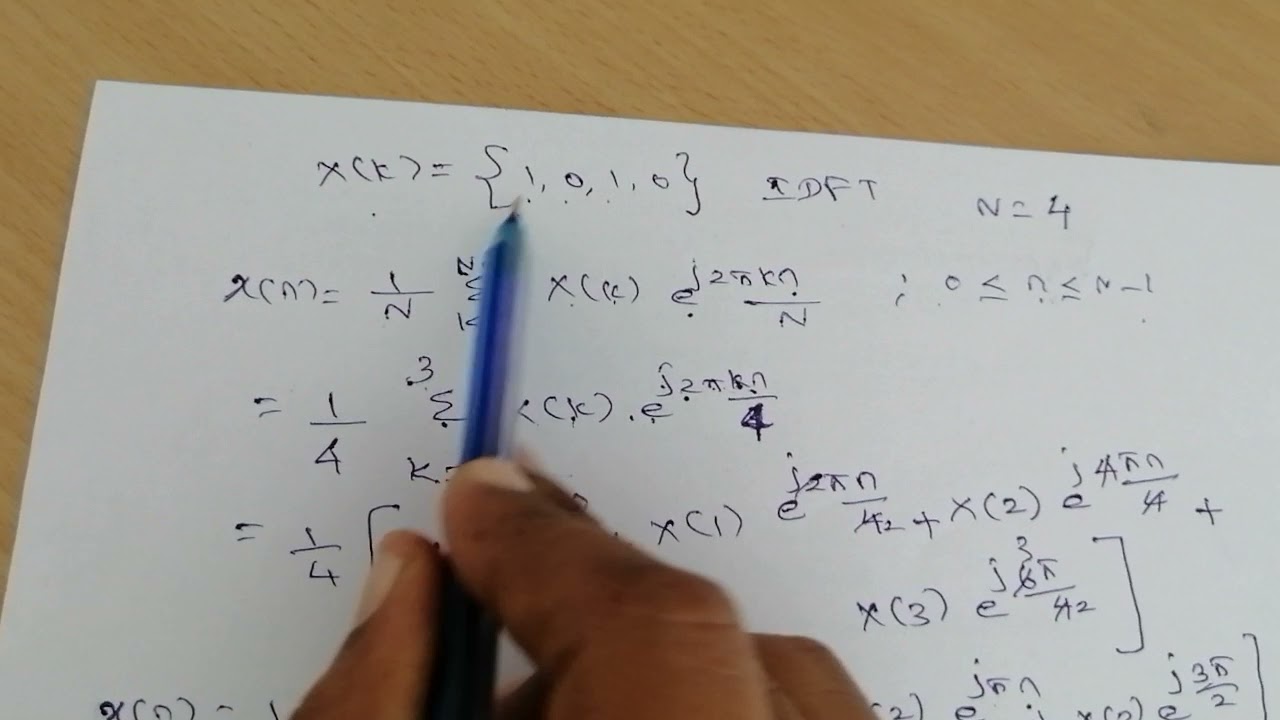 X(K) = { 1, 0, 1, 0 } IDFT N = 4
x(n) = 1/N Σ X(K) e^{j2πKn/N} ; 0 ≤ n ≤ N-1
= 1/4 3 Σ K= X(K) . e^{j2πKn/4}
= 1/4 [ X(1) e^{j2πn/42} + X(2) e^{j4πn/4} +
X(3) e^{j3 6π/42} ]
x(n) = 1 (2) e^{jπn} + X(3) e^{j3π/2} ]